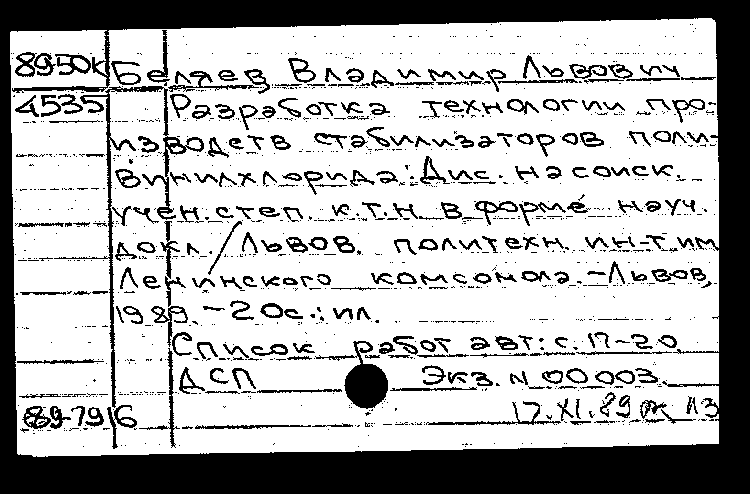 8950к Беляев, Владимир Львович
4535 Разработка технологии про-
изводств стабилизаторов поли-
винилхлорида: Дис. на соиск.
учен. степ. к.т.н. в форме науч.
докл. / Львов. политехн. ин-т им
Ленинского комсомола. - Львов,
1989. - 20с.: ил.
Список работ авт: с. 17-20
ДСП Экз. N 00003.
89-7916 17.XI.89